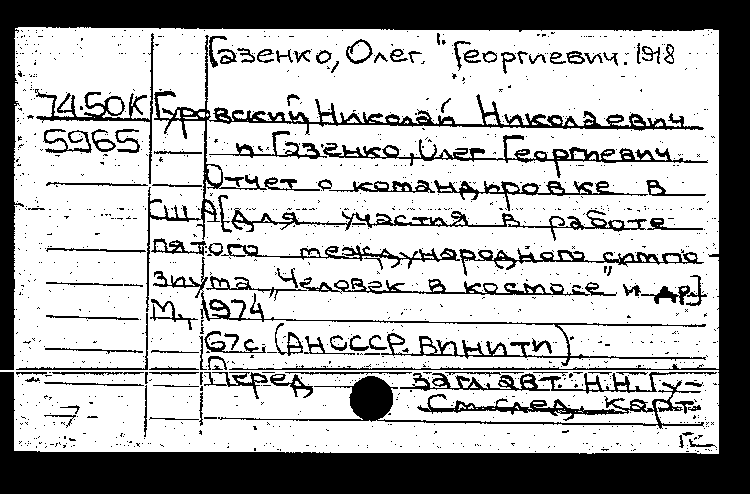 Газенко, Олег Георгиевич. 1918
74.50К Гуровский Николай Николаевич
5965 и Газенко, Олег Георгиевич.
Отчет о командировке в
США [для участия в работе
пятого международного симпо-
зиума "Человек в космосе" и др.]
М., 1974
67с. (АН СССР. ВИНИТИ)
Перед загл. авт.: Н.Н. Гу-
См. след. карт.